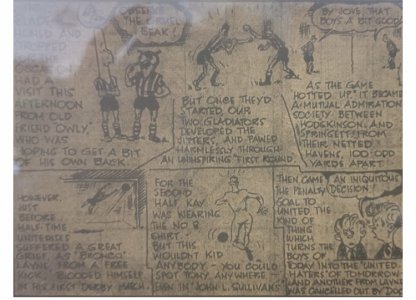 BLADE
HONED AND
STROPPED
HAD A
VISIT THIS
AFTERNOON
FROM OLD
FRIEND "OWLY,"
WHO WAS
HOPING TO GET A BIT
OF HIS OWN BACK.
BEHIND
THE CRUEL
BEAK!
BUT ONCE THEY'D
STARTED OUR
TWO GLADIATORS
DEVELOPED THE
JITTERS, AND PAWED
HARMLESSLY THROUGH
AN UNINSPIRING "FIRST ROUND"
BY JOVE, THAT
BOY'S A BIT GOOD!
AS THE GAME
HOTTED UP, IT BECAME
A MUTUAL ADMIRATION
SOCIETY BETWEEN
HODGKINSON, AND
SPRINGETT, FROM
THEIR NETTED
HAVENS, 100-ODD
YARDS APART
HOWEVER,
JUST
BEFORE
HALF-TIME
UNITED
SUFFERED A GREAT
GRIEF, AS "BRONCO"
LAYNE, FROM A FREE
KICK, BLOODED HIMSELF
IN HIS FIRST DERBY MATCH.
FOR THE
SECOND
HALF KAY
WAS WEARING
THE NO 8
SHIRT.
BUT THIS
WOULDN'T KID
ANYBODY - YOU COULD
SPOT TONY ANYWHERE -
EVEN IN JOHN L. SULLIVAN'S
THEN CAME AN INIQUITOUS
THE PENALTY DECISION!
GOAL TO
UNITED, THE
KIND OF
THING
WHICH
TURNS THE
BOYS OF
TODAY INTO THE UNITED
HATERS OF TOMORROW
AND ANOTHER FROM LAYNE
WAS CANCELLED OUT BY DOC